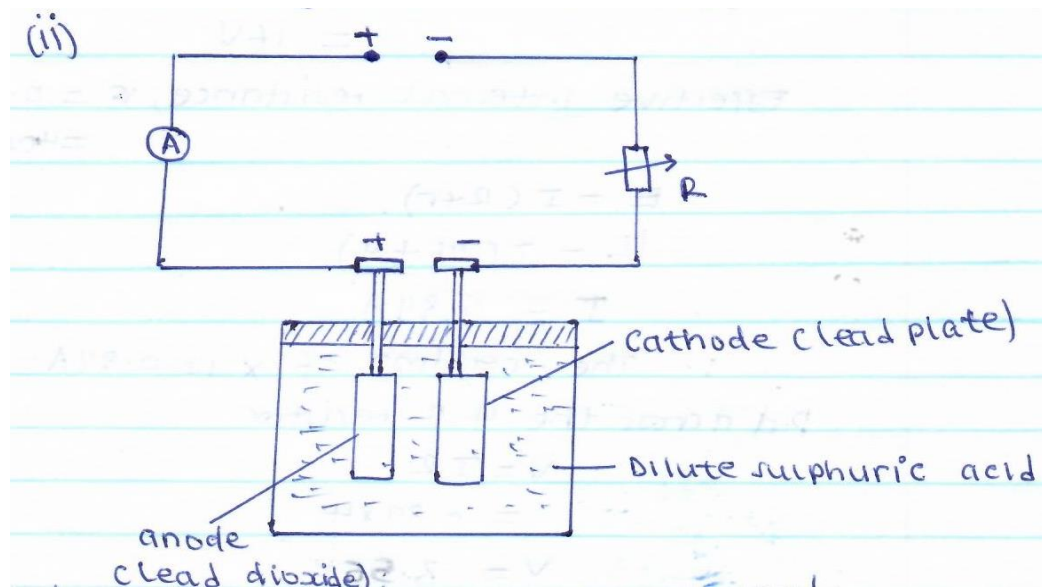 (ii)
+ -
A
R
+ -
Cathode (lead plate)
Dilute sulphuric acid
anode
(lead dioxide)